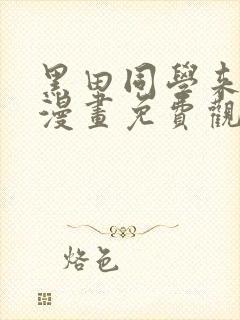 黑田同學來
漫畫免費觀
烙色